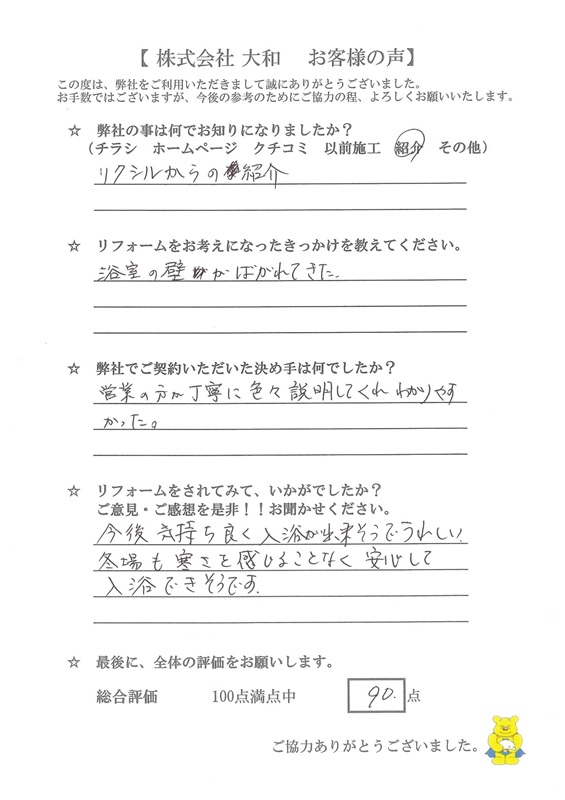 【 株式会社 大和　お客様の声】
この度は、弊社をご利用いただきまして誠にありがとうございました。
お手数ではございますが、今後の参考のためにご協力の程、よろしくお願いいたします。
☆ 弊社の事は何でお知りになりましたか？
（チラシ　ホームページ　クチコミ　以前施工　紹介　その他）
リクシルからの紹介
☆ リフォームをお考えになったきっかけを教えてください。
浴室の壁がはがれてきた.
☆ 弊社でご契約いただいた決め手は何でしたか？
営業の方が丁寧に色々説明してくれ わかりやす
かった。
☆ リフォームをされてみて、いかがでしたか？
ご意見・ご感想を是非！！お聞かせください。
今後 気持ち良く入浴が出来そうでうれしい.
冬場も寒さを感じることなく安心して
入浴できそうです.
☆ 最後に、全体の評価をお願いします。
総合評価　100点満点中　90.点
ご協力ありがとうございました。